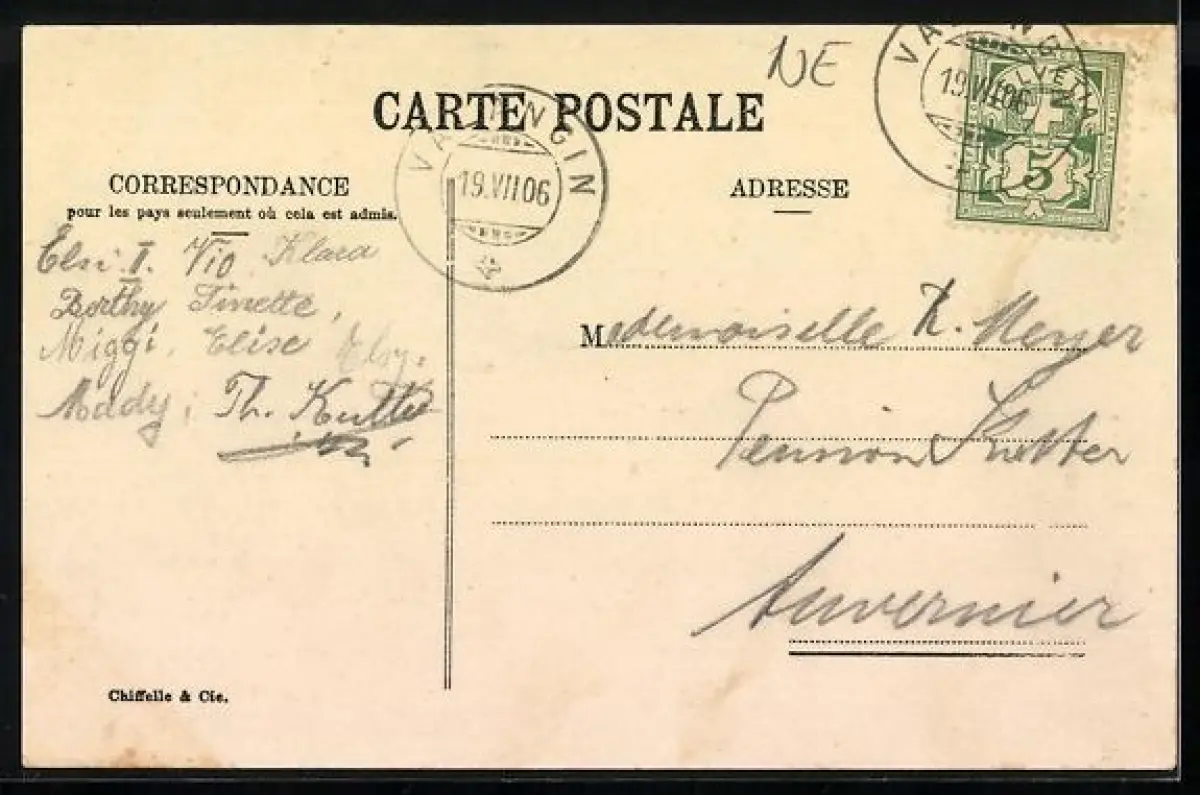 NE
CARTE POSTALE
VALANGIN
19.VII.06
VALANGIN
19.VII.06
HELVETIA
FRANCO
5
CORRESPONDANCE
pour les pays seulement où cela est admis.
ADRESSE
Elsi II. Vio Klara
Berthy Finette,
Miggi, Elise Elsy,
Mady, Th.
Mademoiselle K. Meyer
Pension
Auvernier
Chiffelle & Cie.